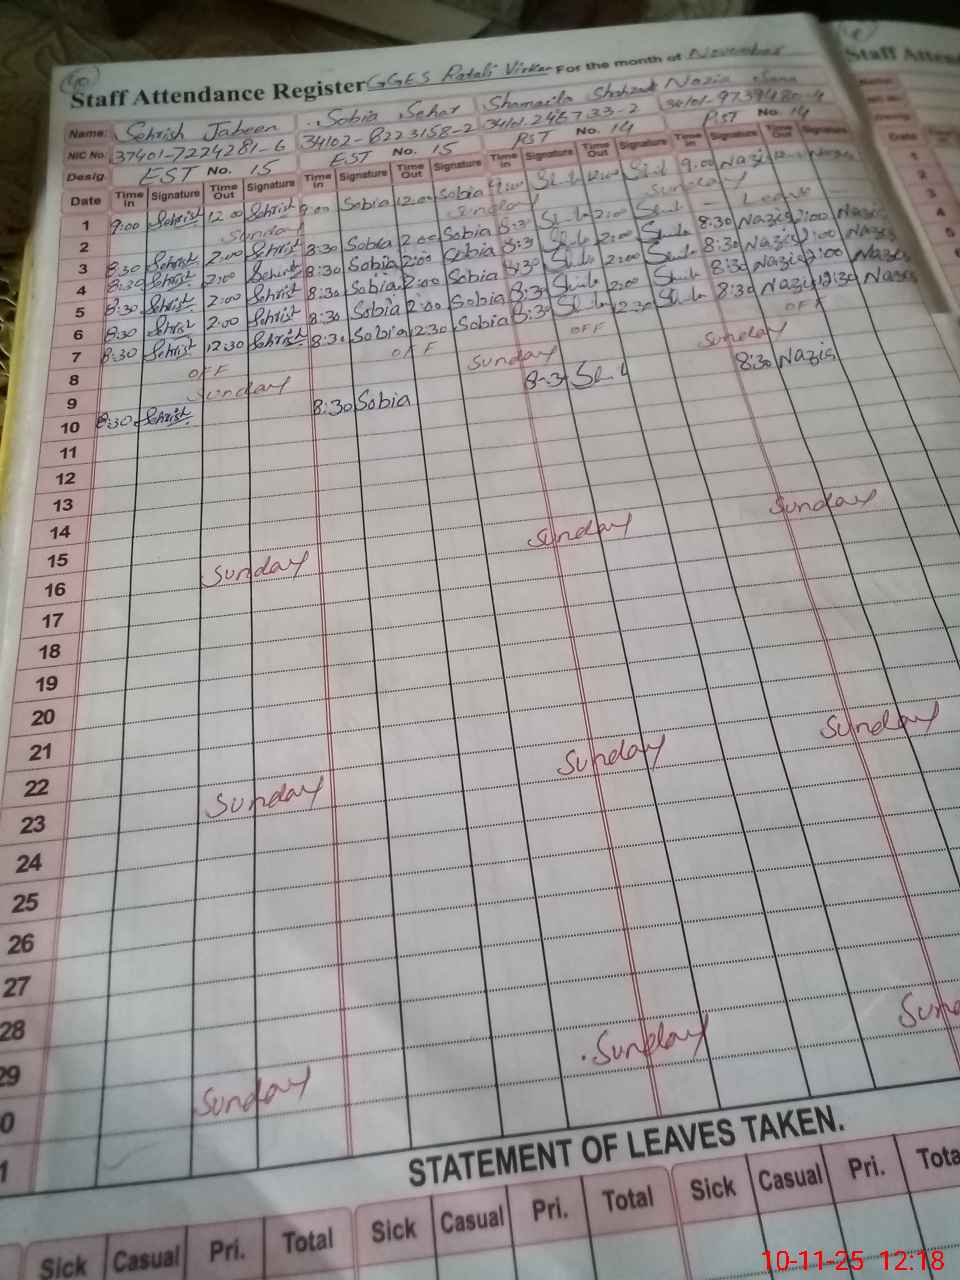 Staff Attendance Register GGES Ratali Virkan For the month of November
Name: Sehrish Jabeen Sobia Sehar Shamaila Shahzad Nazia Sana
NIC No. 37401-7224281-6 34102-8223158-2
Desig. EST No. 15 EST No. 15 PST No. 14 PST No. 14
Date Time In Signature Time Out Signature Time In Signature Time Out Signature Time In Signature Time Out Signature Time In Signature Time Out Signature
1 9:00 Sehrish 12:00 Sehrish 9:00 Sobia 12:00 Sobia 9:00 Nazis
2 Sunday Sunday Sunday
3 8:30 Sehrish 2:00 Sehrish 8:30 Sobia 2:00 Sobia 8:30 2:00 - Leave
4 8:30 Sehrish 2:00 Sehrish 8:30 Sobia 2:00 Sobia 8:30 2:00 8:30 Nazis 2:00 Nazis
5 8:30 Sehrish 2:00 Sehrish 8:30 Sobia 2:00 Sobia 8:30 2:00 8:30 Nazis 2:00 Nazis
6 8:30 Sehrish 2:00 Sehrish 8:30 Sobia 2:00 Sobia 8:30 2:00 8:30 Nazis 2:00 Nazis
7 8:30 Sehrish 12:30 Sehrish 8:30 Sobia 12:30 Sobia 8:30 12:30 8:30 Nazis 12:30 Nazis
8 OFF OFF OFF OFF
9 Sunday Sunday Sunday
10 8:30 Sehrish 8:30 Sobia 8:30 8:30 Nazis
11
12
13
14
15
16 Sunday Sunday Sunday
17
18
19
20
21
22
23 Sunday Sunday Sunday
24
25
26
27
28
29
0 Sunday Sunday Sund
1
STATEMENT OF LEAVES TAKEN.
Sick Casual Pri. Total Sick Casual Pri. Total Sick Casual Pri. Tota
Staff Atten
Date
1
2
3
4
5
10-11-25 12:18